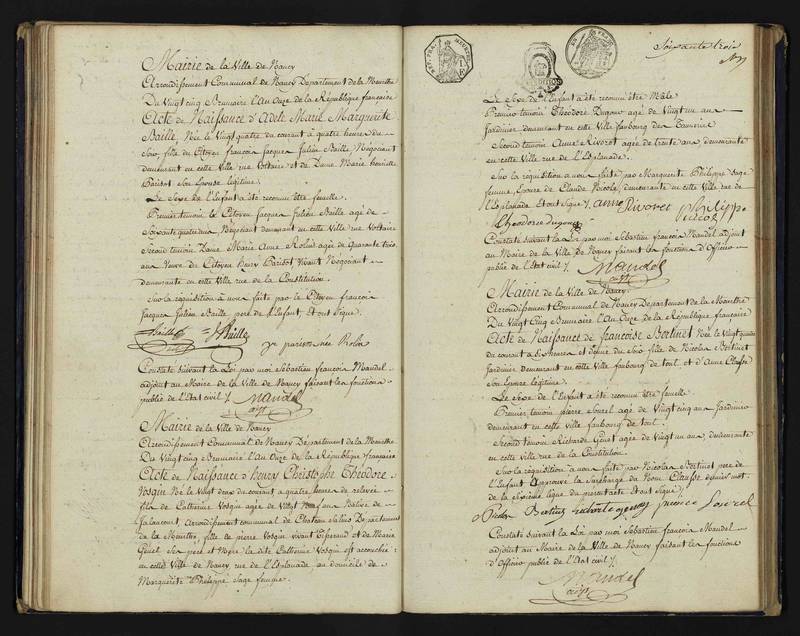 Mairie de la Ville de Nancy
Arrondissement Communal de Nancy Departement de la Meurthe
Du Vingt cinq Brumaire l'An Onze de la République française
Acte de Naissance d'Adele Marie Marguerite
Baille, Née le Vingt quatre du courant à quatre heures du
Soir fille du Citoyen françois Jacques Julien Baille Négociant
demeurant en cette Ville rue Voltaire et de Dame Marie henriette
Parisot Son Epouse légitime.
Le Sexe de l'Enfant a été reconnu être femelle.
Premier témoin le Citoyen Jacques Julien Baille agé de
Soixante quatre ans Négociant demeurant en cette Ville rue Voltaire
Second témoin Dame Marie Anne Rolin agée de Quarante trois
ans Veuve du Citoyen henry Parisot Vivant Négociant
demeurante en cette Ville rue de la Constitution.
Sur la réquisition à nous faite par le Citoyen françois
Jacques Julien Baille pere de l'Enfant, Et ont Signé.
Baille J Baille
Rolin
Constaté suivant la Loi par moi Sébastien françois Mandel
adjoint au Maire de la Ville de Nancy faisant les fonctions
public de l'Etat civil /.
Mandel
adjt
Mairie de la Ville de Nancy
Arrondissement Communal de Nancy Departement de la Meurthe
Du Vingt cinq Brumaire l'An Onze de la République française
Acte de Naissance d'henry Christophe Théodore
Vosgin Né le Vingt deux du courant a quatre heures de relevée
fils de Catherine Vosgin agée de Vingt ans Native de
Jalaucourt, Arrondissement communal de Chateau Salins Departement
de la Meurthe, fille de pierre Vosgin vivant et de Marie
Ses pere et Mere la dite Catherine Vosgin est accouchée
en cette Ville de Nancy, rue de l'Esplanade au domicile de
Marguerite Philippe Sage femme.
Soixante trois
Le Sexe de l'Enfant a été reconnu être Mâle
Premier témoin Théodore Dugony agé de Vingt un ans
Jardinier demeurant en cette Ville faubourg des
Second témoin Anne Rivoret agée de trente ans demeurante
en cette Ville rue de l'Esplanade.
Sur la réquisition à nous faite par Marguerite Philippe Sage
femme, Epouse de Claude Nicole, demeurante en cette Ville rue de
l'Esplanade Et ont Signé /. anne Rivoret philippe
Nicole
Theodore
Constaté suivant la Loi par moi Sébastien françois Mandel adjoint
au Maire de la Ville de Nancy faisant les fonctions d'Officier
public de l'Etat civil /.
Mandel
adjt
Mairie de la Ville de Nancy.
Arrondissement Communal de Nancy Departement de la Meurthe
Du Vingt Cinq Brumaire l'An Onze de la République française
Acte de Naissance de francoise Bertinet Née le Vingt quatre
du courant à heures et demie du Soir fille de Nicolas Bertinet
Jardinier demeurant en cette Ville faubourg de toul et d'Anne Clausse
Son Epouse légitime.
Le Sexe de l'Enfant a été reconnu être femelle
Premier témoin pierre Sourel agé de Vingt cinq ans Jardinier
demeurant en cette Ville faubourg de toul.
Second témoin Richarde agée de Vingt un ans, demeurante
en cette Ville rue de la Constitution.
Sur la réquisition à nous faite par Nicolas Bertinet pere de
l'Enfant approuvé la surcharge du Nom Clausse dernier mot
de la Sixieme ligne du présent acte Et ont Signé /.
Constaté suivant la Loi par moi Sébastien françois Mandel
adjoint au Maire de la Ville de Nancy faisant les fonctions
d'Officier public de l'Etat civil /.
Mandel
adjt